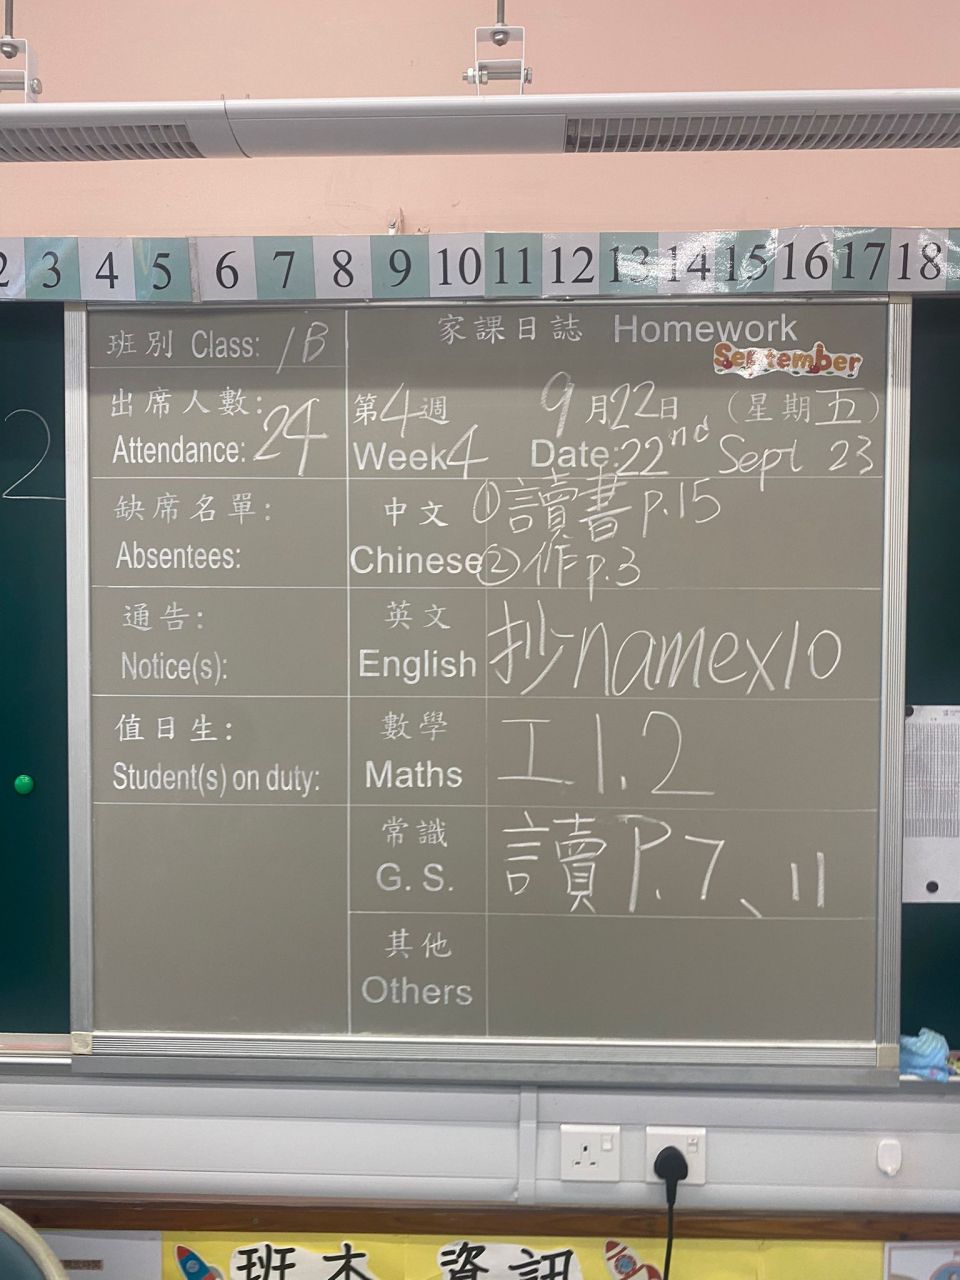 2 3 4 5 6 7 8 9 10 11 12 13 14 15 16 17 18
班別 Class: 1B
家課日誌 Homework
September
出席人數: 24
Attendance:
第4週 9月22日 (星期五)
Week 4 Date: 22nd Sept 23
2
缺席名單:
Absentees:
中文 ①讀書 p.15
Chinese ②作 p.3
通告:
Notice(s):
英文
English 抄namex10
值日生:
Student(s) on duty:
數學
Maths 工1.2
常識
G. S. 讀P.7、11
其他
Others
班本資訊